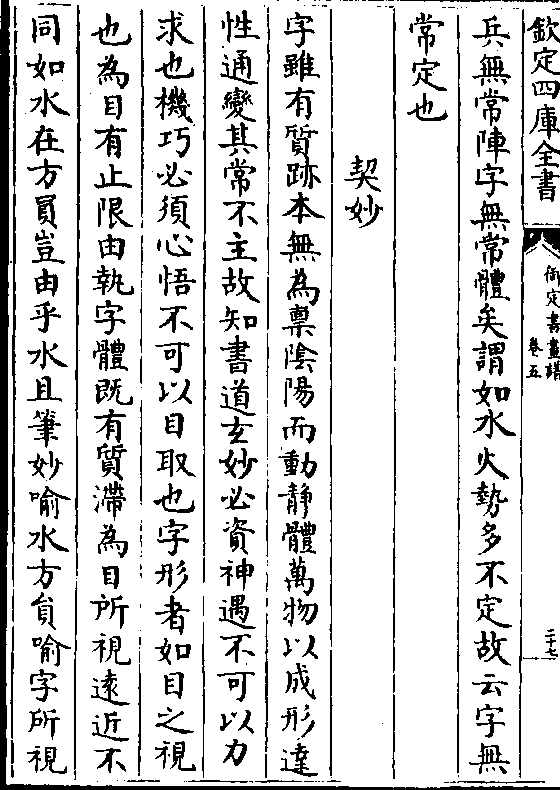 欽定四庫全書
御定書畫譜
卷五
二十七
兵無常陣字無常體矣謂如水火勢多不定故云字無
常定也
契妙
字雖有質跡本無為稟陰陽而動靜體萬物以成形達
性通變其常不主故知書道玄妙必資神遇不可以力
求也機巧必須心悟不可以目取也字形者如目之視
也為目有止限由執字體既有質滯為目所視逺近不
同如水在方員豈由乎水且筆妙喻水方員喻字所視